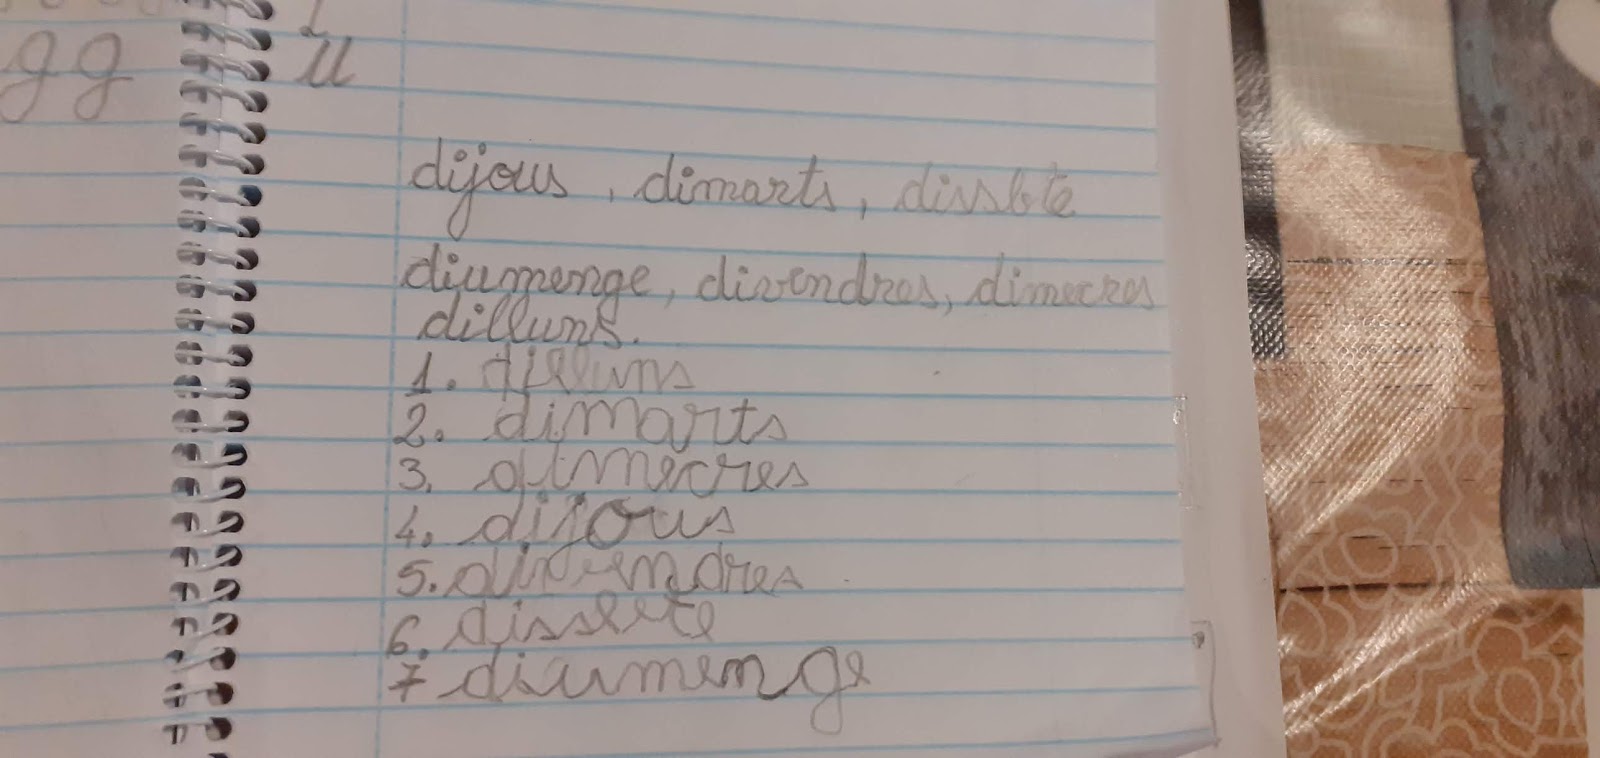 gg
u
dijous, dimarts, dissbte
diumenge, divendres, dimecres
dilluns.
1. dilluns
2. dimarts
3. dimecres
4. dijous
5. divendres
6. dissete
7 diumenge